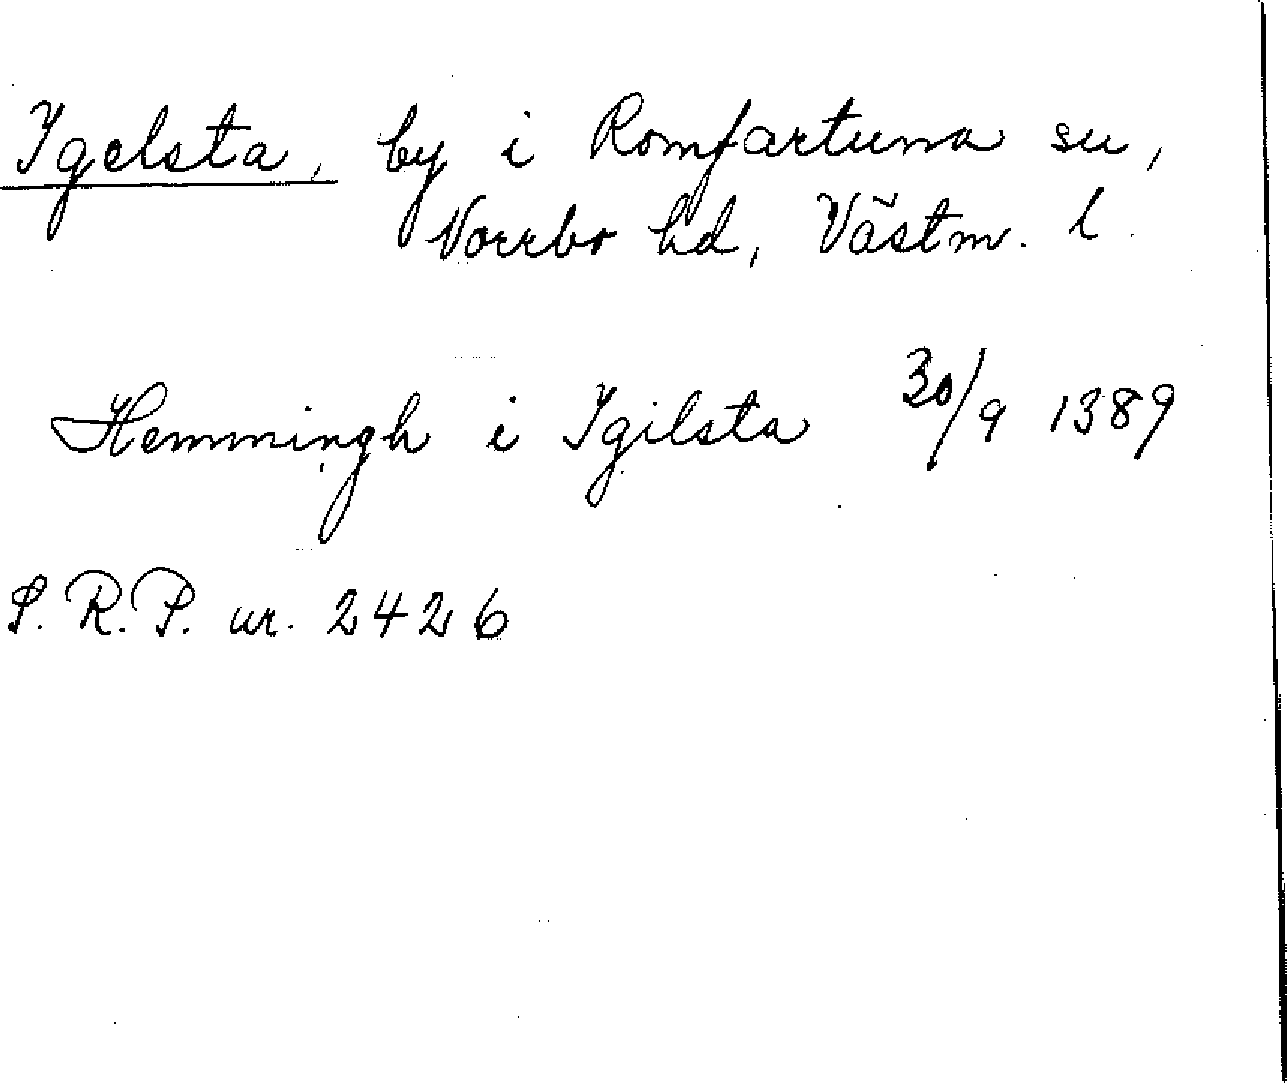 Igelsta, by i Romfartuna sn,
Norrbo hd, Västm. l.
Hemmingh i Igilsta 30/9 1389
S.R.P. nr. 2426